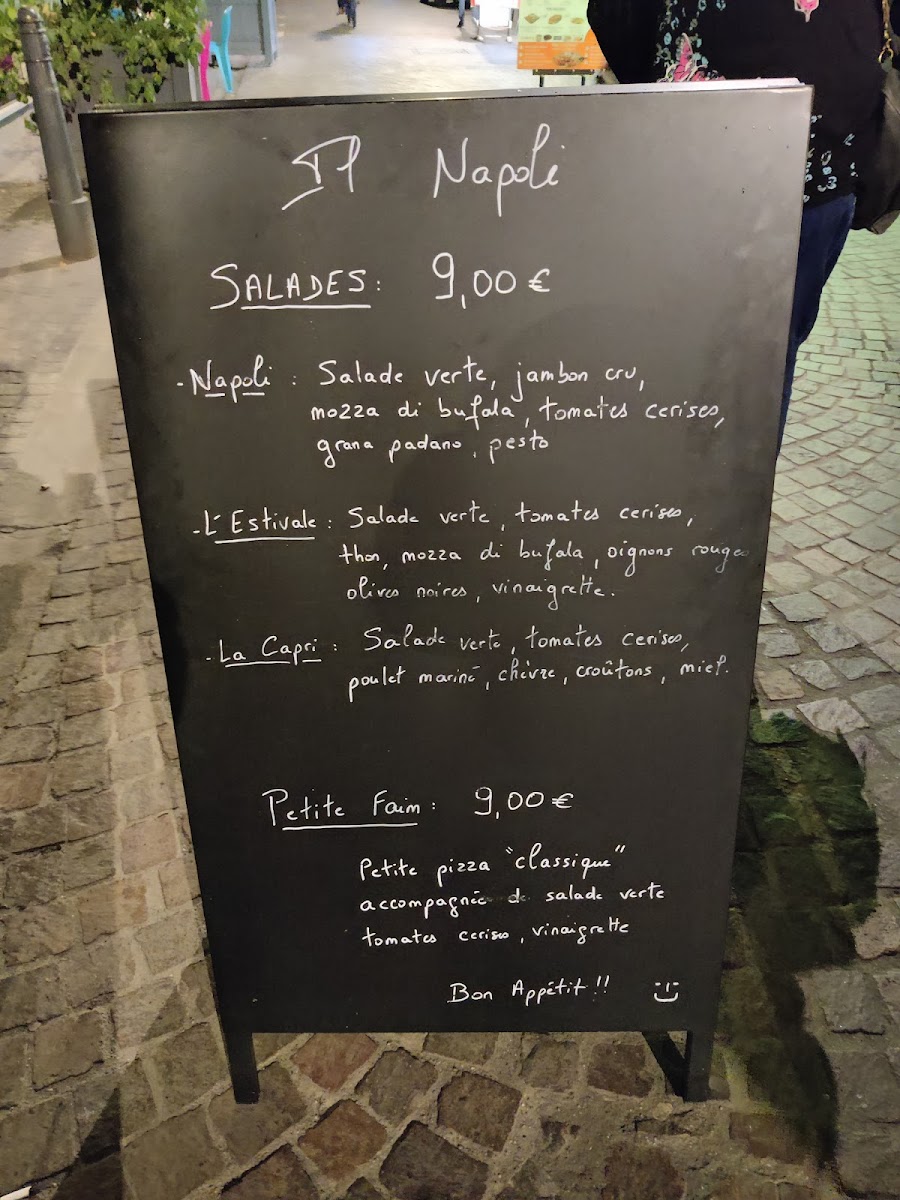 Il Napoli
SALADES : 9,00 €
- Napoli : Salade verte, jambon cru,
mozza di bufala, tomates cerises,
grana padano, pesto
- L'Estivale : Salade verte, tomates cerises,
thon, mozza di bufala, oignons rouges
olives noires, vinaigrette.
- La Capri : Salade verte, tomates cerises,
poulet mariné, chèvre, croûtons, miel.
Petite Faim : 9,00 €
Petite pizza "classique"
accompagnée de salade verte
tomates cerises, vinaigrette
Bon Appétit !!